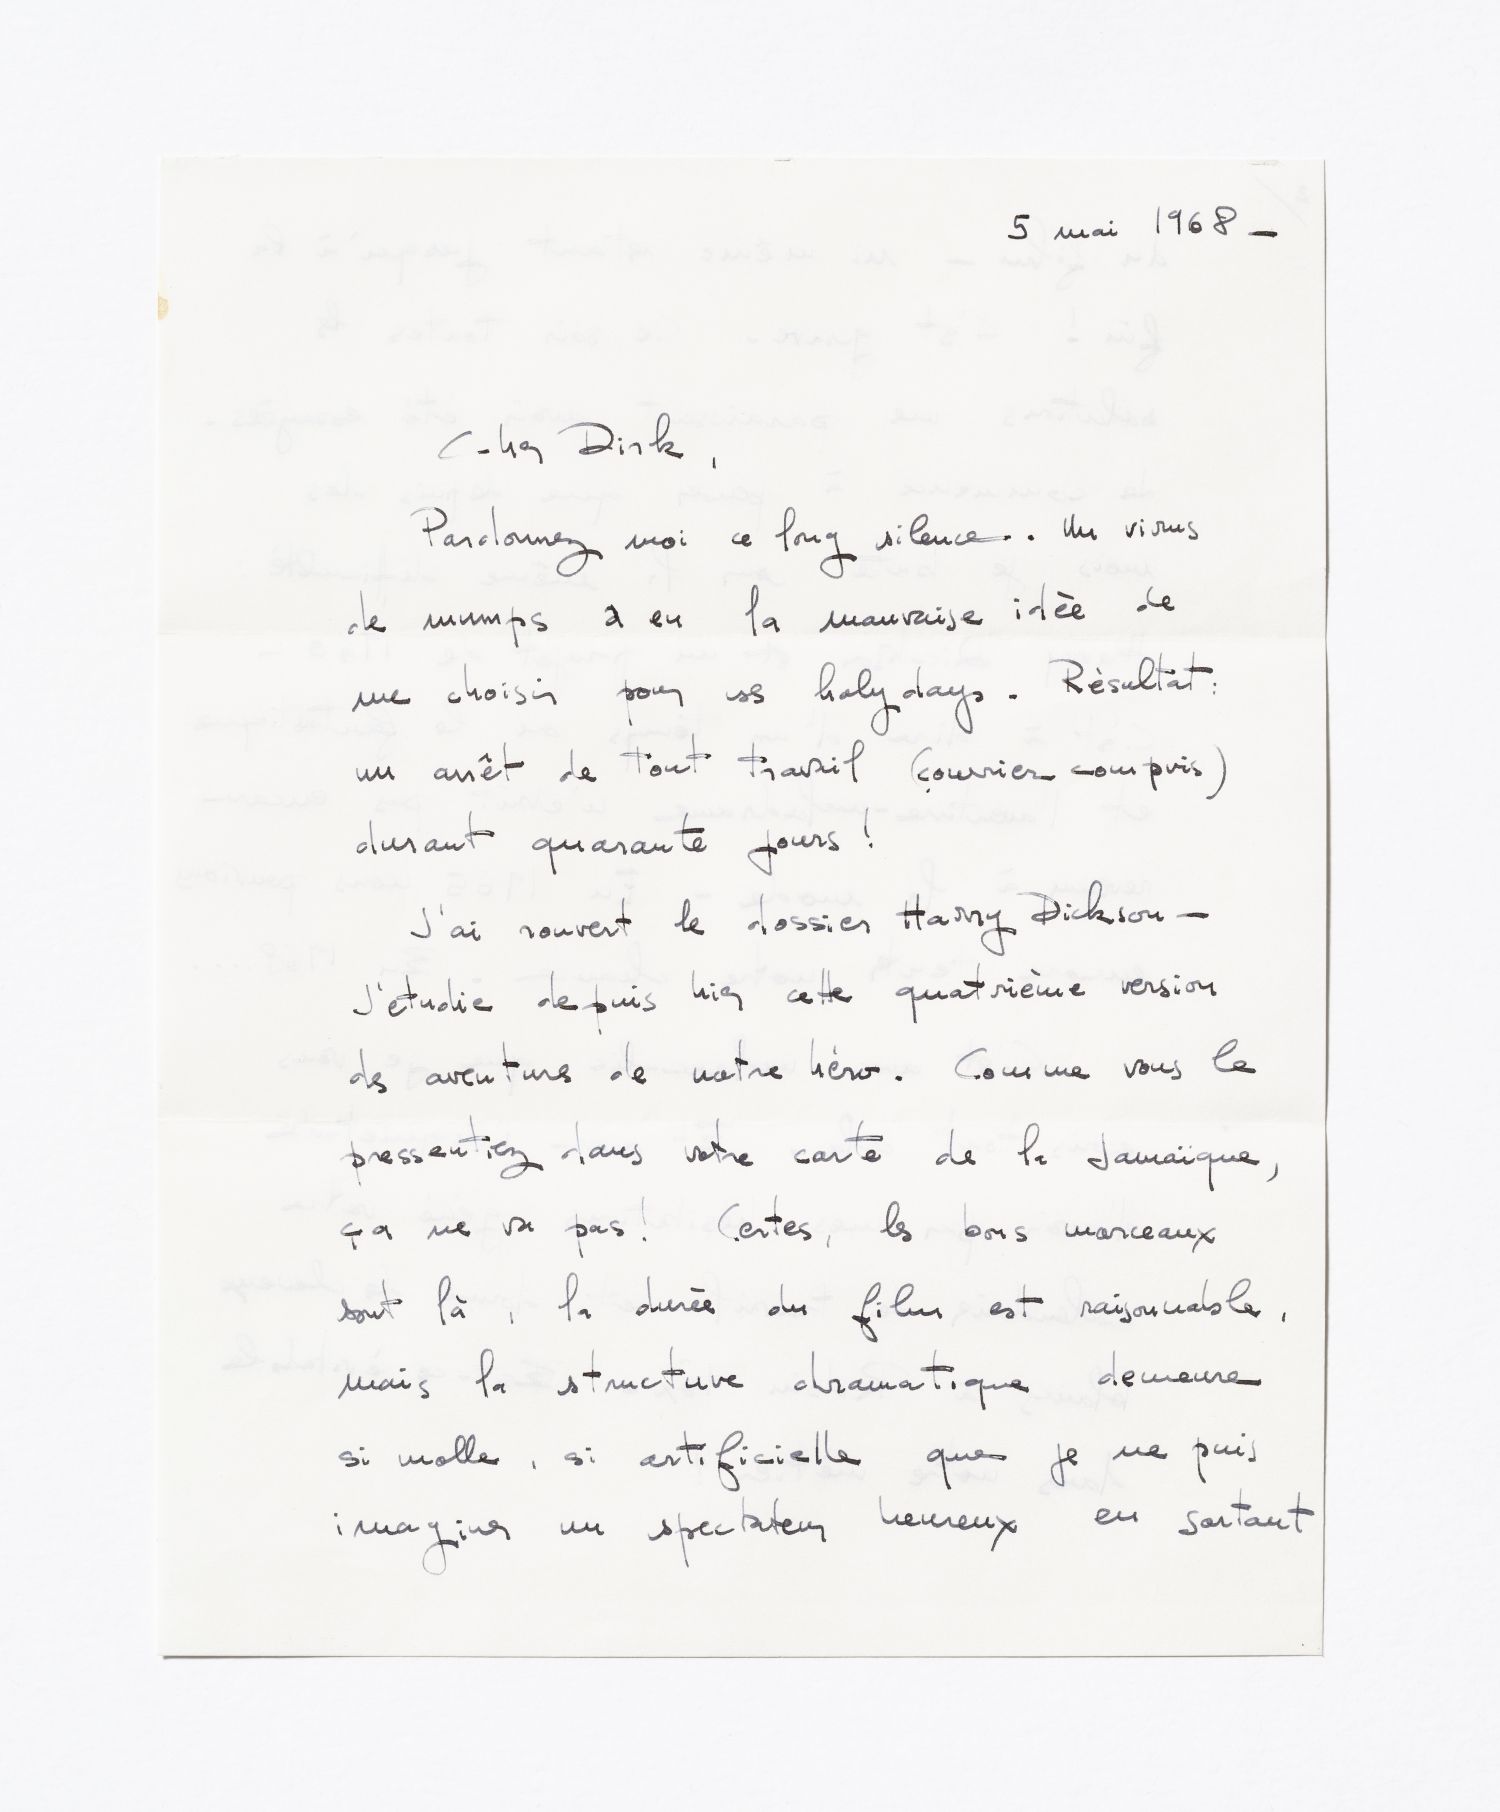 5 mai 1968 –
Cher Dirk,
Pardonnez moi ce long silence.. Un virus
de mumps a eu la mauvaise idée de
me choisir pour ses holydays. Résultat:
un arrêt de tout travail (courrier compris)
durant quarante jours!
J'ai rouvert le dossier Harry Dickson –
J'étudie depuis hier cette quatrième version
des aventures de notre héro. Comme vous le
pressentiez dans votre carte de la Jamaïque,
ça ne va pas! Certes, les bons morceaux
sont là, la durée du film est raisonnable,
mais la structure dramatique demeure
si molle, si artificielle que je ne puis
imaginer un spectateur heureux en sortant